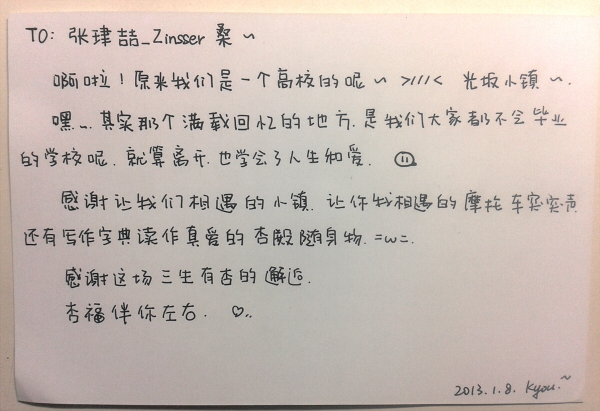 TO: 张珒喆_Zinsser 桑~
啊啦！原来我们是一个高校的呢~ >///< 光坂小镇~.
嘿~. 其实那个满载回忆的地方, 是我们大家都不会毕业
的学校呢. 就算离开, 也学会了人生和爱.
感谢让我们相遇的小镇. 让你我相遇的摩托车突突责
还有写作字典读作真爱的杏殿随身物. =w=.
感谢这场三生有杏的邂逅.
杏福伴你左右. ♡..
2013.1.8. Kyou.~